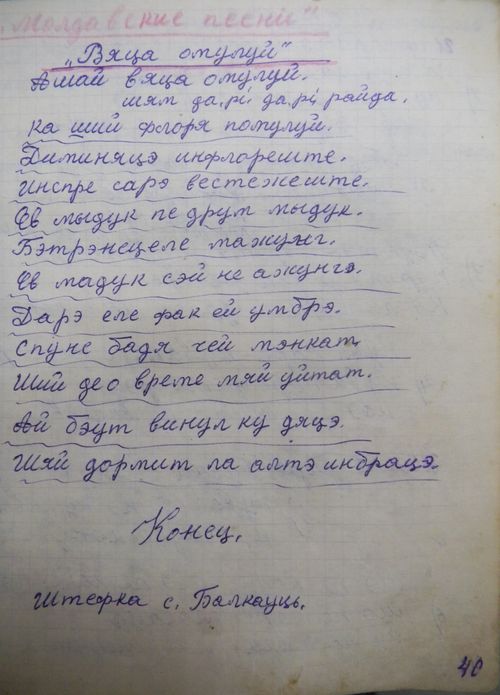 „Молдавские песни"
„Вяца омулуй"
Ашай вяца омулуй.
шям да,рі да,рі райда.
ка ший флоря помулуй.
Диминяцэ инфлореште.
Инспре сарэ вестежеште.
Ев мыдук пе друм мыдук.
Бэтрэнецеле мажунг.
Ев мадук сэй не ажунгэ.
Дарэ еле фак ей умбрэ.
Спуне бадя чей мэнкат,
Ший део време мяй уйтат.
Ай бэут винул ку дяцэ.
Шяй дормит ла алтэ инбрацэ.
Конец.
Штефка с. Балкауць.
40